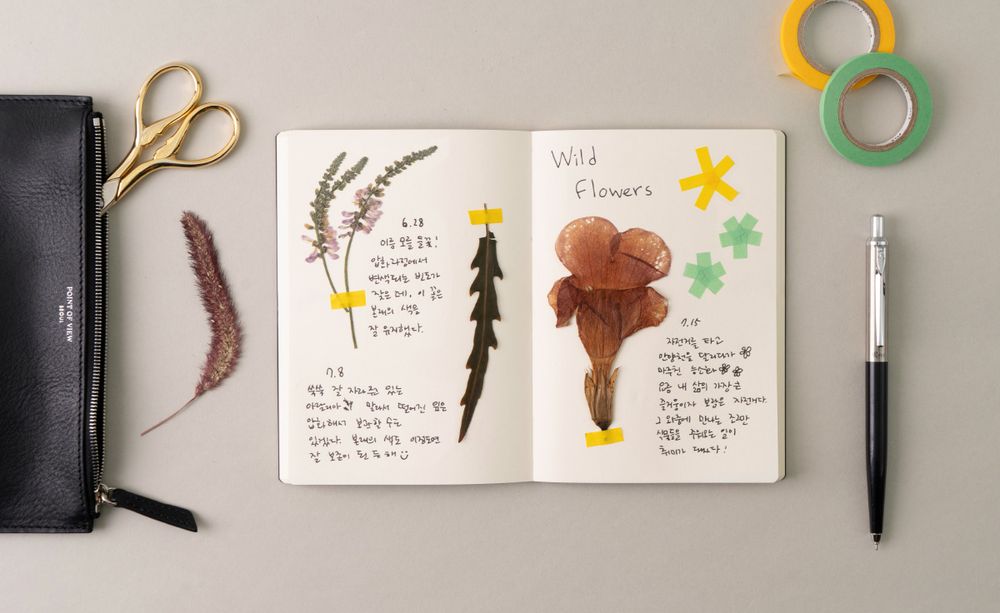 POINT OF VIEW
SEOUL
6.28
이름 모를 들꽃!
압화 과정에서
변색되는 빈도가
잦은데, 이 꽃은
본래의 색을
잘 유지했다.
7.8
쑥쑥 잘 자라주고 있는
말라서 떨어진 잎은
압화해서 보관할 수도
있겠다. 본래의 색도 이정도면
잘 보존이 된 듯 해
Wild
Flowers
7.15
자전거를 타고
안양천을 달리다가
마주친 능소화
요즘 내 삶의 가장 큰
즐거움이자 보람은 자전거다.
그 와중에 만나는 조그만
식물들을 주워오는 일이
취미가 되었다!